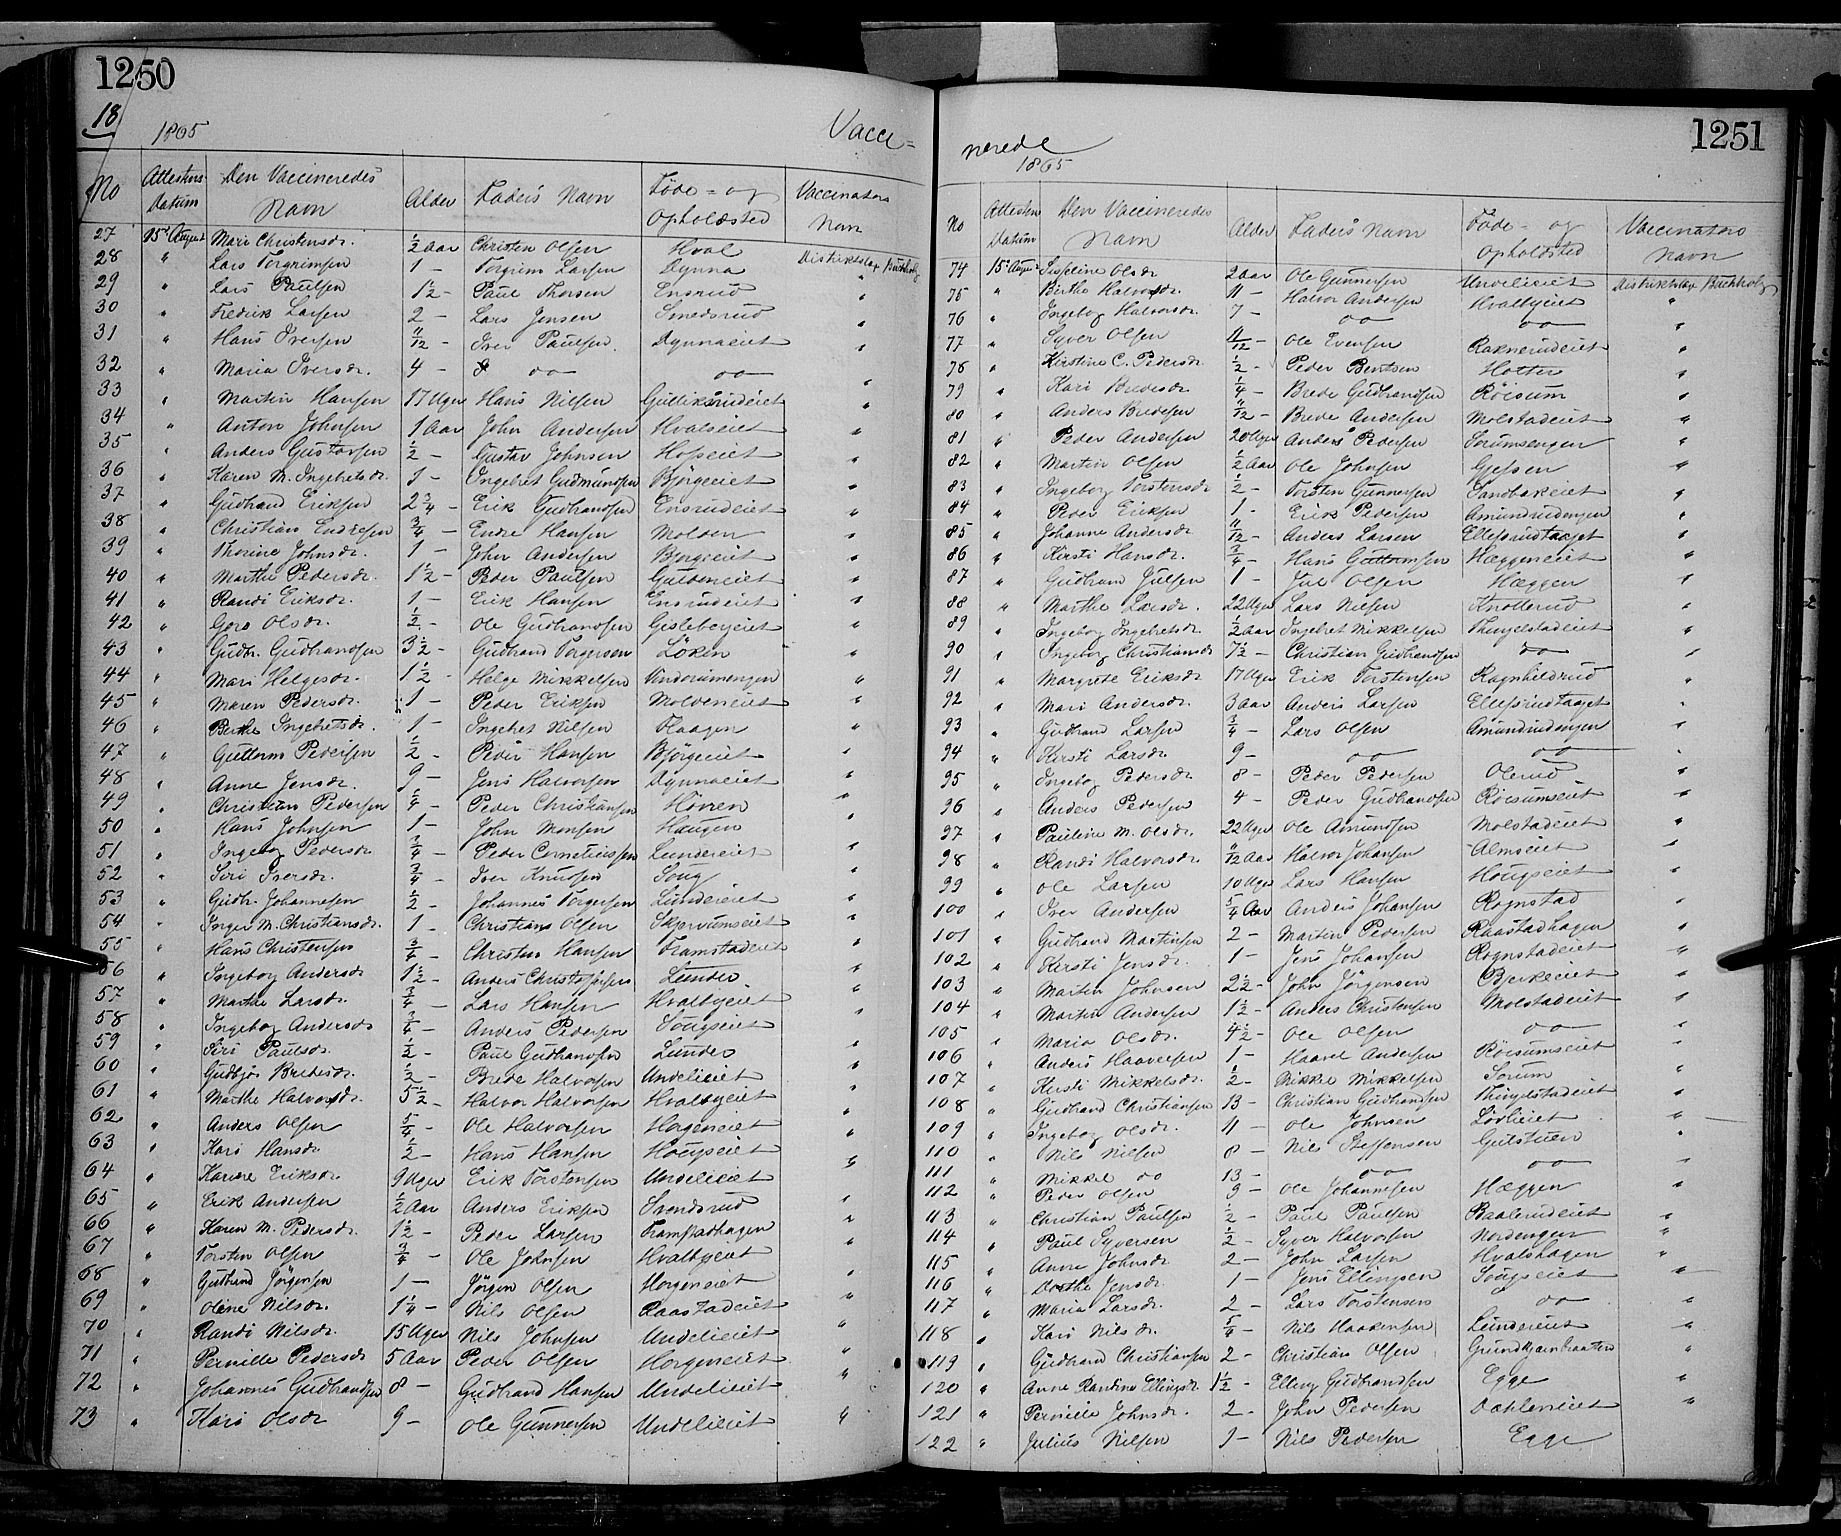 1250
18
1865
Vacci=
No Attestens Datum Den Vaccineredes Navn Alder Faders Navn Føde- og Opholdsted Vaccinators Navn
27 15de August Mari Christensdr. 1/2 Aar Christen Olsen Hval Distriktslæge Buchholz
28 " Lars Torgrimsen 1 - Torgrim Larsen Dynna "
29 " Lars Paulsen 1 1/2 - Paul Thorsen Ensrud "
30 " Fredrik Larsen 2 - Lars Jensen Smedsrud "
31 " Hans Iversen 11/12 - Iver Paulsen Dynnaeiet "
32 " Maria Iversdr. 4 - do do "
33 " Martin Hansen 17 Uger Hans Nilsen Gulliksrudeiet "
34 " Anton Johnsen 1 Aar John Andersen Hvalseiet "
35 " Anders Gustavsen 1/2 - Gustav Johnsen Hofseiet "
36 " Karen M. Ingebretsdr. 1 - Ingebret Gudmundsen Bjørgeeiet "
37 " Gudbrand Eriksen 2 3/4 - Erik Gudbrandsen Ensrudeiet "
38 " Christian Endresen 3/4 - Endre Hansen Molden "
39 " Thorine Johnsdr. 1 - John Andersen Bjørgeeiet "
40 " Marthe Pedersdr. 1 1/2 - Peder Paulsen Guldeneiet "
41 " Randi Eriksdr. 1 - Erik Hansen Ensrudeiet "
42 " Goro Olsdr. 1/2 - Ole Gudbrandsen Gisleboeiet "
43 " Gudbr. Gudbrandsen 3 1/2 - Gudbrand Torgersen Løken "
44 " Mari Helgesdr. 1 1/2 - Helge Mikkelsen Vindorumengen "
45 " Maren Pedersdr. 1 - Peder Eriksen Moldeneiet "
46 " Berthe Ingebretsdr. 1 - Ingebret Nilsen Flaagen "
47 " Guttorm Pedersen 1/2 - Peder Hansen Bjørgeeiet "
48 " Anne Jensdr. 9 - Jens Halvorsen Dynnaeiet "
49 " Christian Pedersen 1/4 - Peder Christiansen Horren "
50 " Hans Johnsen 1 - John Monsen Haugen "
51 " Ingeborg Pedersdr. 3/4 - Peder Corneliussen Lundereiet "
52 " Siri Iversdr. 3/4 - Iver Knudsen Soug "
53 " Gudbr. Johannesen 1/2 - Johannes Torgersen Lundereiet "
54 " Inger M. Christiansdr. 1 - Christian Olsen Skjervumseiet "
55 " Hans Christensen 3/4 - Christen Hansen Framstadeiet "
56 " Ingeborg Andersdr. 1 1/2 - Anders Christophersen Lunder "
57 " Marthe Larsdr. 3/4 - Lars Hansen Hvalbyeiet "
58 " Ingeborg Andersdr. 3/4 - Anders Pedersen Sougseiet "
59 " Siri Paulsdr. 1/2 - Paul Gudbrandsen Lunder "
60 " Gudbjør Bredesdr. 1/2 - Brede Halvorsen Undelieiet "
61 " Marthe Halvorsdr. 5 1/2 - Halvor Halvorsen Hvalbyeiet "
62 " Anders Olsen 5/4 - Ole Halvorsen Horgeneiet "
63 " Kari Hansdr. 1/2 - Hans Hansen Hougseiet "
64 " Karine Eriksdr. 9 Uger Erik Torstensen Undelieiet "
65 " Erik Andersen 1/2 Aar Anders Eriksen Svendsrud "
66 " Karen M. Pedersdr. 1 1/2 - Peder Larsen Framstadhagen "
67 " Torsten Olsen 3/4 - Ole Johnsen Hvalbyeiet "
68 " Gudbrand Jørgensen 1 - Jørgen Olsen Horgeneiet "
69 " Oline Nilsdr. 1 1/4 - Nils Olsen Raastadeiet "
70 " Randi Nilsdr. 15 Uger Nils Johnsen Undelieiet "
71 " Pernille Pedersdr. 5 Aar Peder Olsen Horgeneiet "
72 " Johannes Gudbrandsen 8 - Gudbrand Hansen Undelieiet "
73 " Kari Olsdr. 9 - Ole Gunnersen Undelieiet "
1251
nerede
1865
No Attestens Datum Den Vaccineredes Navn Alder Faders Navn Føde- og Opholdsted Vaccinators Navn
74 15de August Sisseline Olsdr. 2 Aar Ole Gunnersen Undelieiet Distriktslæge Buchholz
75 " Birthe Halvorsdr. 11 - Halvor Andersen Hvalbyeiet "
76 " Ingeborg Halvorsdr. 7 - do do "
77 " Syver Olsen 11/12 - Ole Evensen Raknerudeiet "
78 " Kirstine C. Pedersdr. 1/2 - Peder Bentsen Hotter "
79 " Kari Bredesdr. 1/4 - Brede Gudbrandsen Røisum "
80 " Anders Bredesen 11/12 - Brede Andersen Molstadeiet "
81 " Peder Andersen 20 Uger Anders Pedersen Sorumsengen "
82 " Martin Olsen 1/2 Aar Ole Johnsen Gjefsen "
83 " Ingeborg Torstensdr. 1/2 - Torsten Gunnersen Sandbakeiet "
84 " Peder Eriksen 1 - Erik Pedersen Amundrudengen "
85 " Johanne Andersdr. 11/12 - Anders Larsen Ellefsrudtaget "
86 " Kirsti Hansdr. 3/4 - Hans Guttormsen Hæggeneiet "
87 " Gudbrand Julsen 1 - Jul Olsen Hæggen "
88 " Marthe Larsdr. 22 Uger Lars Nilsen Knotterud "
89 " Ingeborg Ingebretsdr. 1/2 Aar Ingebret Mikkelsen Thingelstadeiet "
90 " Ingeborg Christiansdr. 7 1/2 - Christian Gudbrandsen do "
91 " Margrete Eriksdr. 17 Uger Erik Torstensen Ragnhildrud "
92 " Mari Andersdr. 3 Aar Anders Larsen Ellefsrudtaget "
93 " Gudbrand Larsen 3/4 - Lars Olsen Amundrudengen "
94 " Kirsti Larsdr. 9 - do do "
95 " Ingeborg Pedersdr. 8 - Peder Pedersen Olerud "
96 " Anders Pedersen 4 - Peder Gudbrandsen Røisumseiet "
97 " Pauline M. Olsdr. 22 Uger Ole Amundsen Molstadeiet "
98 " Randi Halvorsdr. 11/12 Aar Halvor Johansen Almseiet "
99 " Ole Larsen 10 Uger Lars Hansen Hougseiet "
100 " Iver Andersen 5/4 Aar Anders Johansen Rognstad "
101 " Gudbrand Martinsen 2 - Martin Pedersen Raastadhagen "
102 " Kirsti Jensdr. 1 - Jens Johansen Rognstadeiet "
103 " Martin Johnsen 2 1/2 - John Jørgensen Bjerkeeiet "
104 " Martin Andersen 1 1/2 - Anders Christensen Molstadeiet "
105 " Maria Olsdr. 4 1/2 - Ole Olsen do "
106 " Anders Haavelsen 1 - Haavel Andersen Røisumseiet "
107 " Kirsti Mikkelsdr. 1/2 - Mikkel Mikkelsen Sorum "
108 " Gudbrand Christiansen 13 - Christian Gudbrandsen Thingelstadeiet "
109 " Ingeborg Olsdr. 11 - Ole Johnsen Lodlieiet "
110 " Nils Nilsen 8 - Nils Steffensen Gulstuen "
111 " Mikkel do 13 - do do "
112 " Peder Olsen 9 - Ole Johannesen Hæggen "
113 " Christian Paulsen 1/2 - Paul Paulsen Baalerudeiet "
114 " Paul Syversen 1/2 - Syver Halvorsen Nordengen "
115 " Anne Johnsdr. 2 - John Larsen Hvalshagen "
116 " Dorthe Jensdr. 1 - Jens Ellingsen Sougseiet "
117 " Maria Larsdr. 2 - Lars Torstensen do "
118 " Kari Nilsdr. 5/4 - Nils Haakensen Lundereiet "
119 " Gudbrand Christiansen 2 - Christian Olsen "
120 " Anne Randine Ellingsdr. 1 1/2 - Elling Gudbrandsen Egge "
121 " Pernille Johnsdr. 2 - John Pedersen Dæhleneiet "
122 " Julius Nilsen 1 - Nils Pedersen Egge